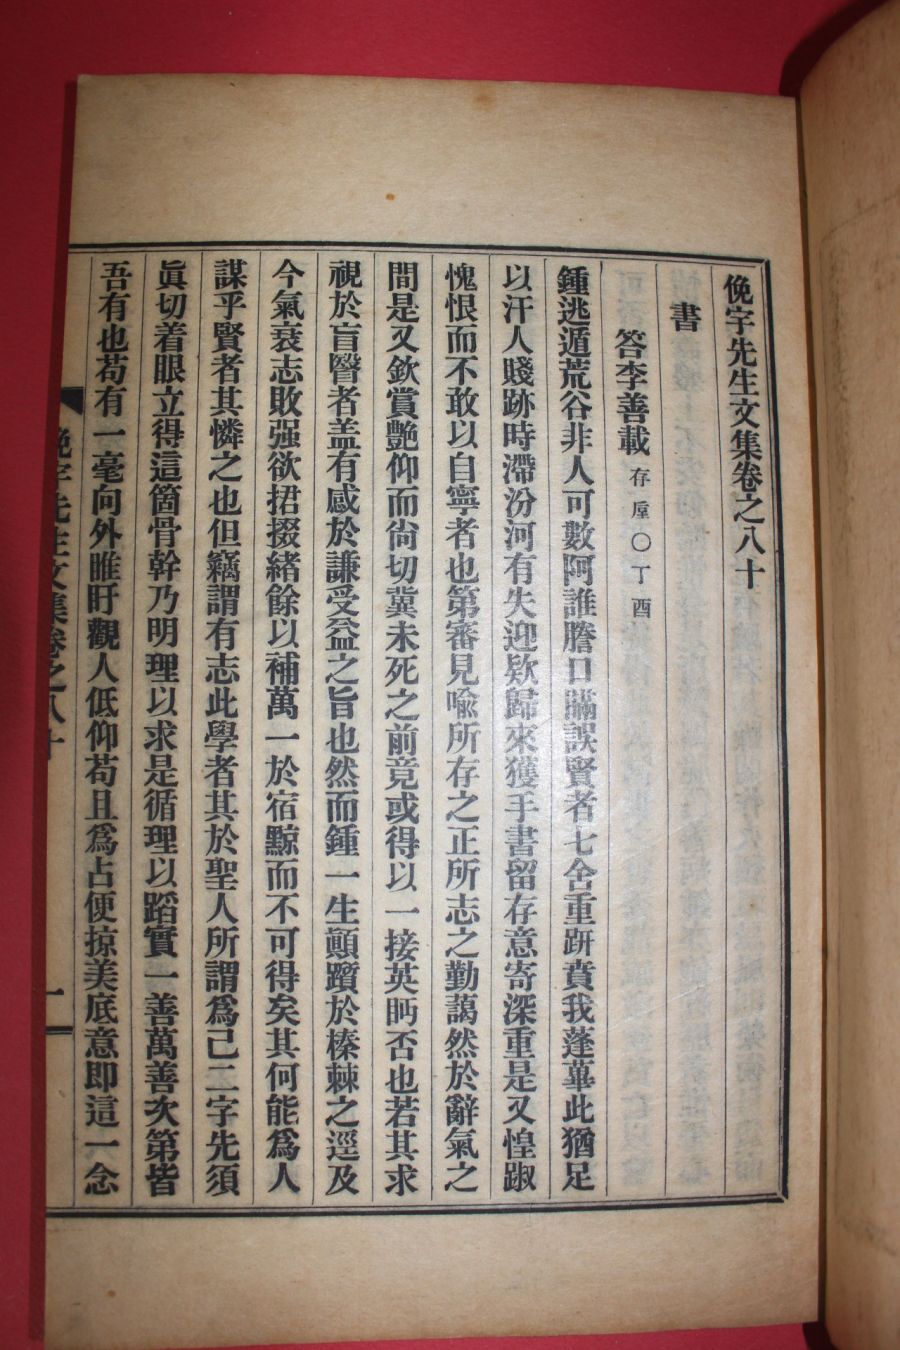 俛宇先生文集卷之八十
書
答李善載存厔○丁酉
鍾逃遁荒谷非人可數阿誰謄口瞞誤賢者七舍重趼賁我蓬蓽此猶足
以汗人賤跡時滯汾河有失迎欵歸來獲手書留存意寄深重是又惶踧
愧恨而不敢以自寧者也第審見喩所存之正所志之勤藹然於辭氣之
間是又欽賞艶仰而尙切冀未死之前竟或得以一接英眄否也若其求
視於盲醫者盖有感於謙受益之旨也然而鍾一生顚躓於榛棘之逕及
今氣衰志敗强欲捃掇緖餘以補萬一於宿黥而不可得矣其何能爲人
謀乎賢者其憐之也但竊謂有志此學者其於聖人所謂爲己二字先須
眞切着眼立得這箇骨幹乃明理以求是循理以蹈實一善萬善次第皆
吾有也苟有一毫向外睢盱觀人低仰苟且爲占便掠美底意卽這一念
俛宇先生文集卷之八十
一